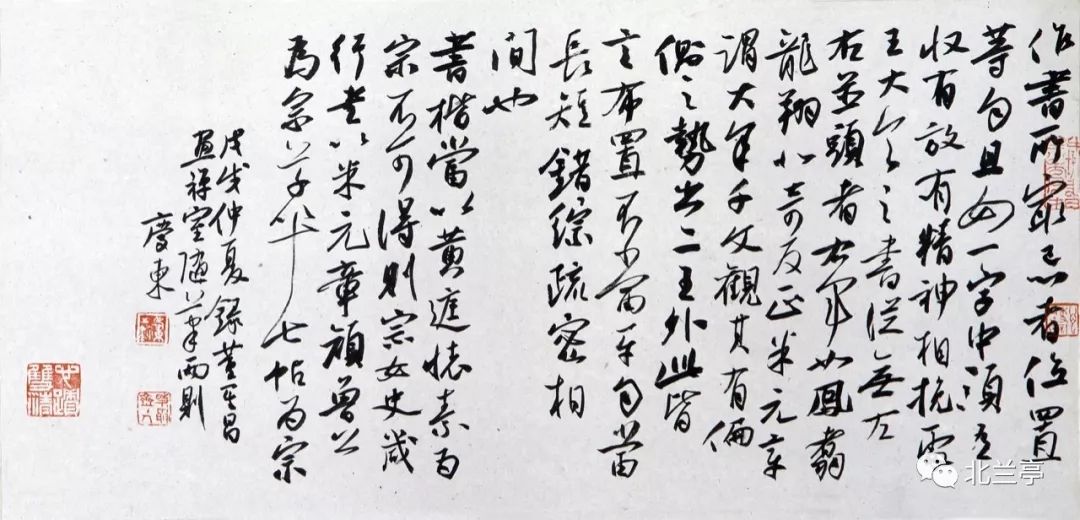 作書所最忌者位置
等匀且如一字中須有
收有放有精神相挽處
王大令之書從無左
右並頭者右軍如鳳翥
龍翔似奇反正米元章
謂大年千文觀其有偏
側之勢出二王外此皆
言布置不當平匀當
長短錯綜疏密相
間也
書楷當以黄庭懷素為
宗不可得則宗女史箴
行書以米元章顏魯公
為宗草以十七帖為宗
戊戌仲夏錄董其昌
畫禪室隨筆兩則
慶東
北兰亭